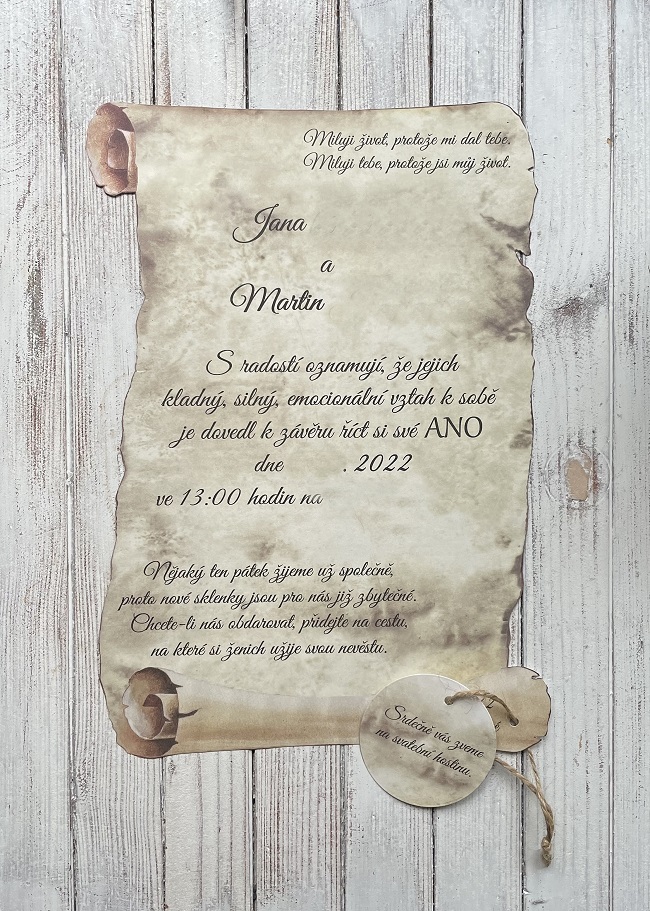 Miluji život, protože mi dal tebe.
Miluji tebe, protože jsi můj život.
Jana
a
Martin
S radostí oznamují, že jejich
kladný, silný, emocionální vztah k sobě
je dovedl k závěru říct si své ANO
dne . 2022
ve 13:00 hodin na
Nějaký ten pátek žijeme už společně,
proto nové sklenky jsou pro nás již zbytečné.
Chcete-li nás obdarovat, přidejte na cestu,
na které si ženich užije svou nevěstu.
Srdečně vás zveme
na svatební hostinu.